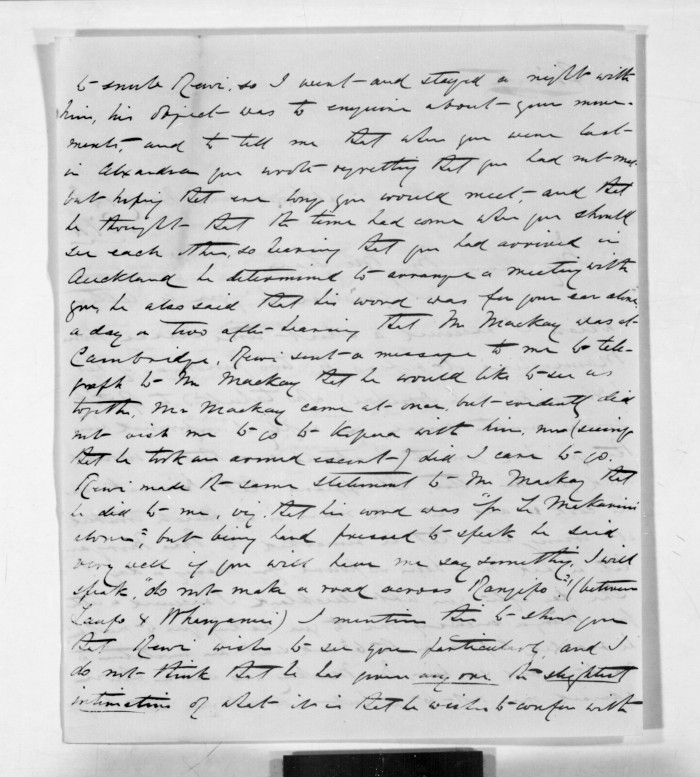 to smile Rewi, so I went and stayed a night with
him, his object was to enquire about your move-
ments, and to tell me that when you were last
in Alexandra you wrote regretting that you had not met
but hoping that ere long you would meet, and that
he thought that the time had come when you should
see each other, so hearing that you had arrived in
Auckland he determined to arrange a meeting with
you, he also said that his word was for your ear alone,
a day or two after hearing that Mr Mackay was at
Cambridge, Rewi sent a message to me to tele-
graph to Mr Mackay that he would like to see us
together. Mr Mackay came at once, but evidently did
not wish me to go to with him, nor (seeing
that he took an armed escort) did I care to go.
Rewi made the same statement to Mr Mackay that
he did to me, viz. that his word was "for Te Makarini
alone", but being hard pressed to speak he said
very well if you will have me say something, I will
speak, "do not make a road across Rangipo" (between
Taupo & Whanganui) I mention this to show you
that Rewi wishes to see you particularly, and I
do not think that he has given any one the slightest
intimation of what it is that he wishes to confer with